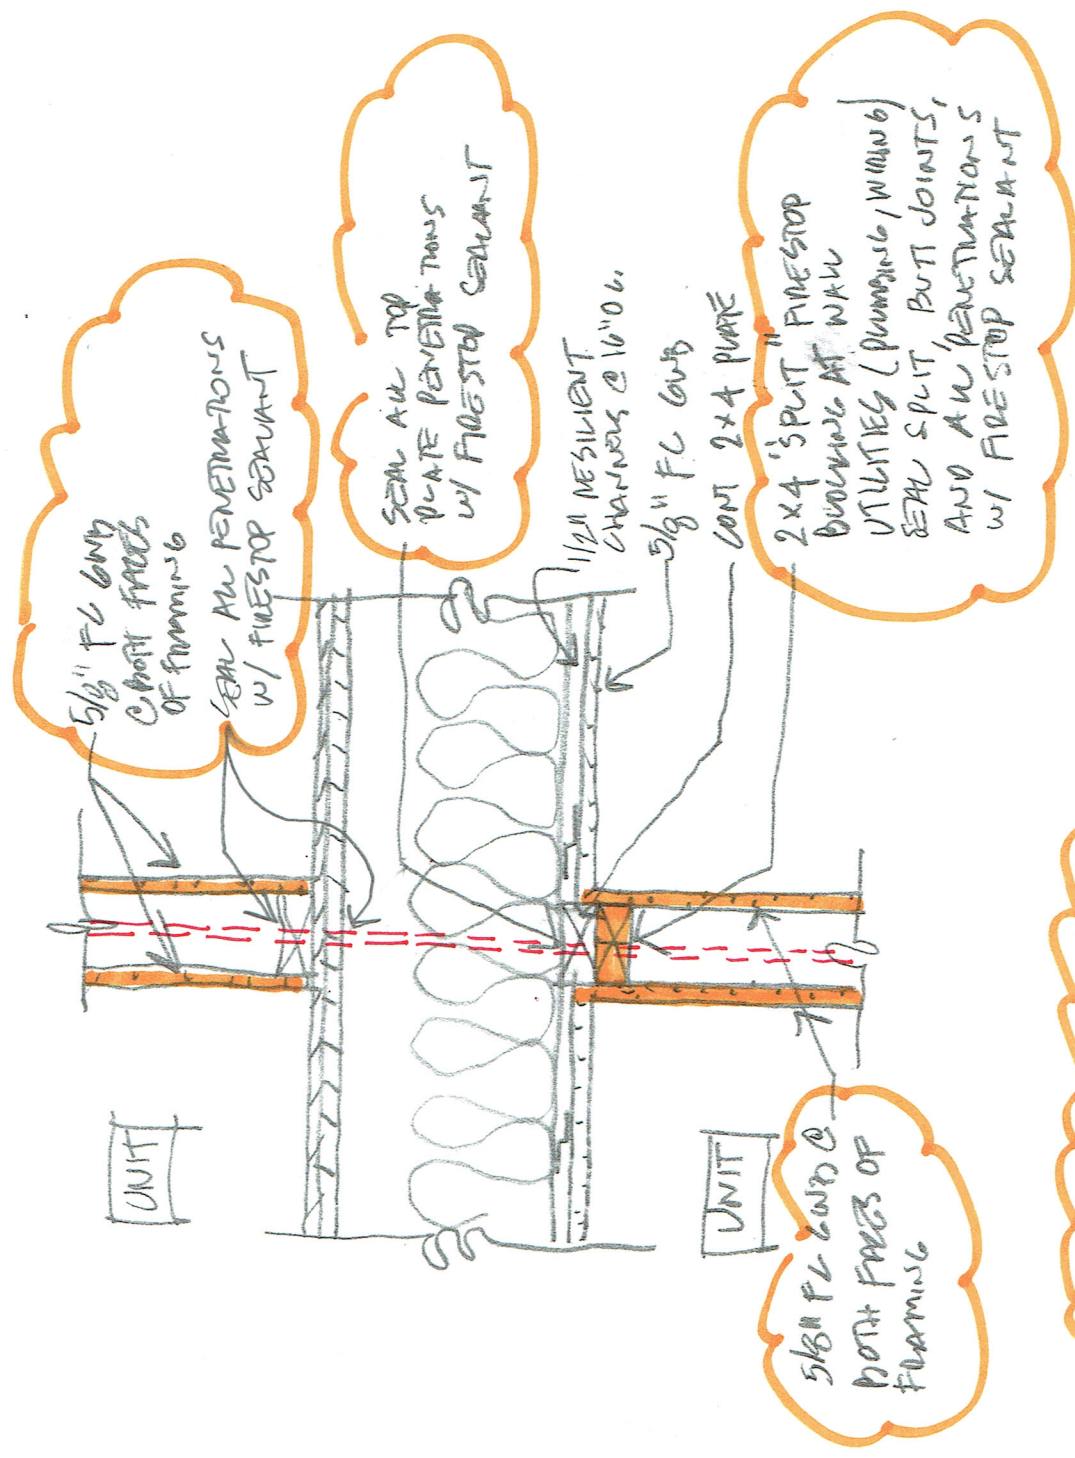 5/8" FC GWB
@ BOTH FACES
OF FRAMING
SEAL ALL PENETRATIONS
W/ FIRESTOP SEALANT
SEAL ALL TOP
PLATE PENETRATIONS
W/ FIRESTOP SEALANT
1/2" RESILIENT
CHANNELS @ 16" O.C.
5/8" FC GWB
CONT 2x4 PLATE
2x4 "SPLIT" FIRESTOP
BLOCKING AT WALL
UTILITIES (PLUMBING, WIRING)
SEAL SPLIT, BUTT JOINTS,
AND ALL PENETRATIONS
W/ FIRESTOP SEALANT
UNIT
UNIT
5/8" FC GWB @
BOTH FACES OF
FRAMING